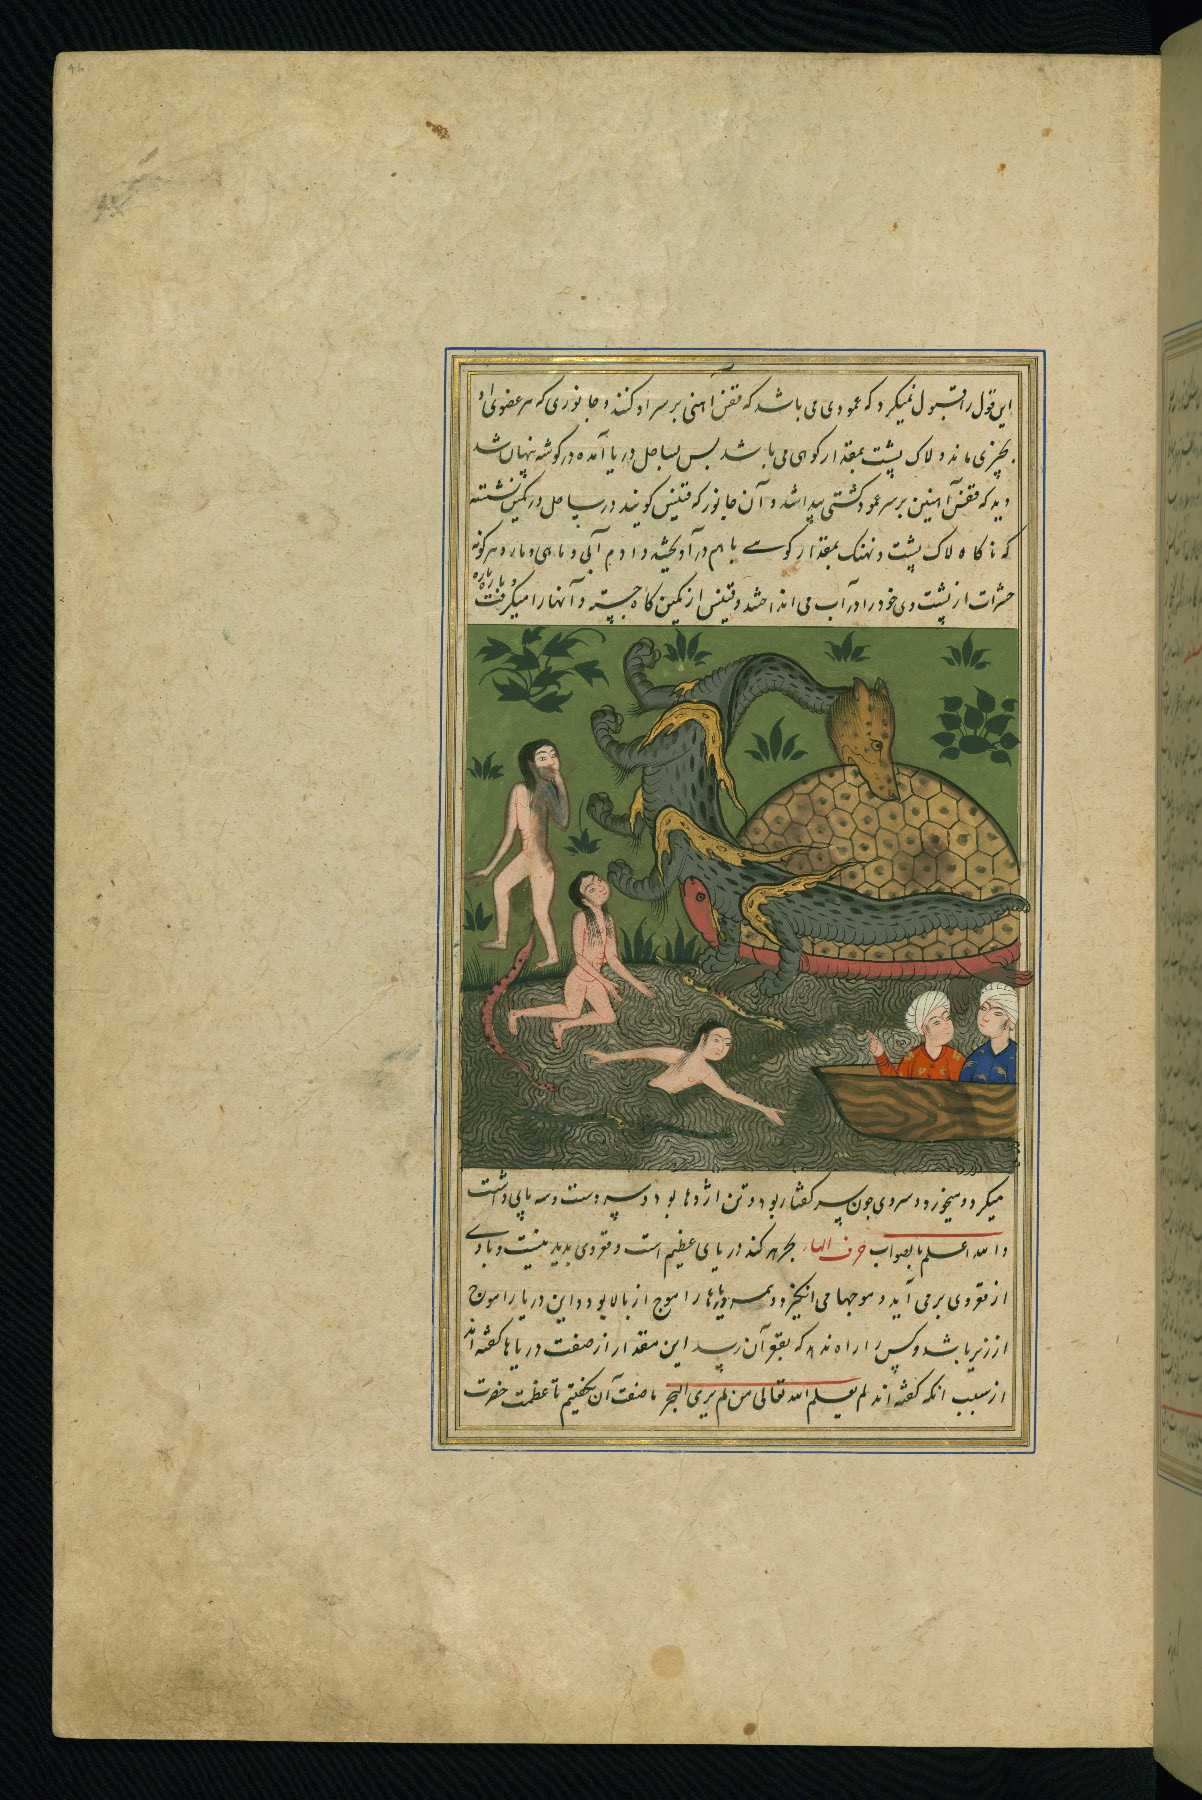 این قول را قبول نمیکرد که عمودی می باشد که قفس آهنی بر سر او کنند و جانوری که هر عضوی او
بچیزی ماند و لاک پشت بمقدار کوهی می باشد پس بساحل دریا آمده در کوشه پنهان شد
دید که قفس آهنین بر سر عمود کشتی پیدا شد و آن جانور که قنینس کویند در ساحل در کمین نشسته
که ناکاه لاک پشت و نهنک بمقدار کوهے باهم در آویخته و ادم آبی و ماهی و مار و هر کونه
حشرات از پشت وی خود را در آب می انداختند و قنینس از کمین کاه جسته و آنهارا میکرفت و پاره پاره
میکرد و میخورد و سر وی چون سر کفتار بود و تن اژدها بود و سه دست و سه پای داشت
والله اعلم بالصواب حرف الهاء بحر هرکند دریای عظیم است و قعر وی پدید نیست و بادے
از قعر وی بر می آید و موجها می انکیزد و همه دریاها را موج از بالا بود و این دریا را موج
از زیر باشد و کس را راه نه که بقعر آن رسد این مقدار از صفت دریاها کفته اند
از سبب انکه کفته اند لم یعلم الله تعالی من لم یری البحر ما صفت آن بکفتیم تا عظمت حضرت